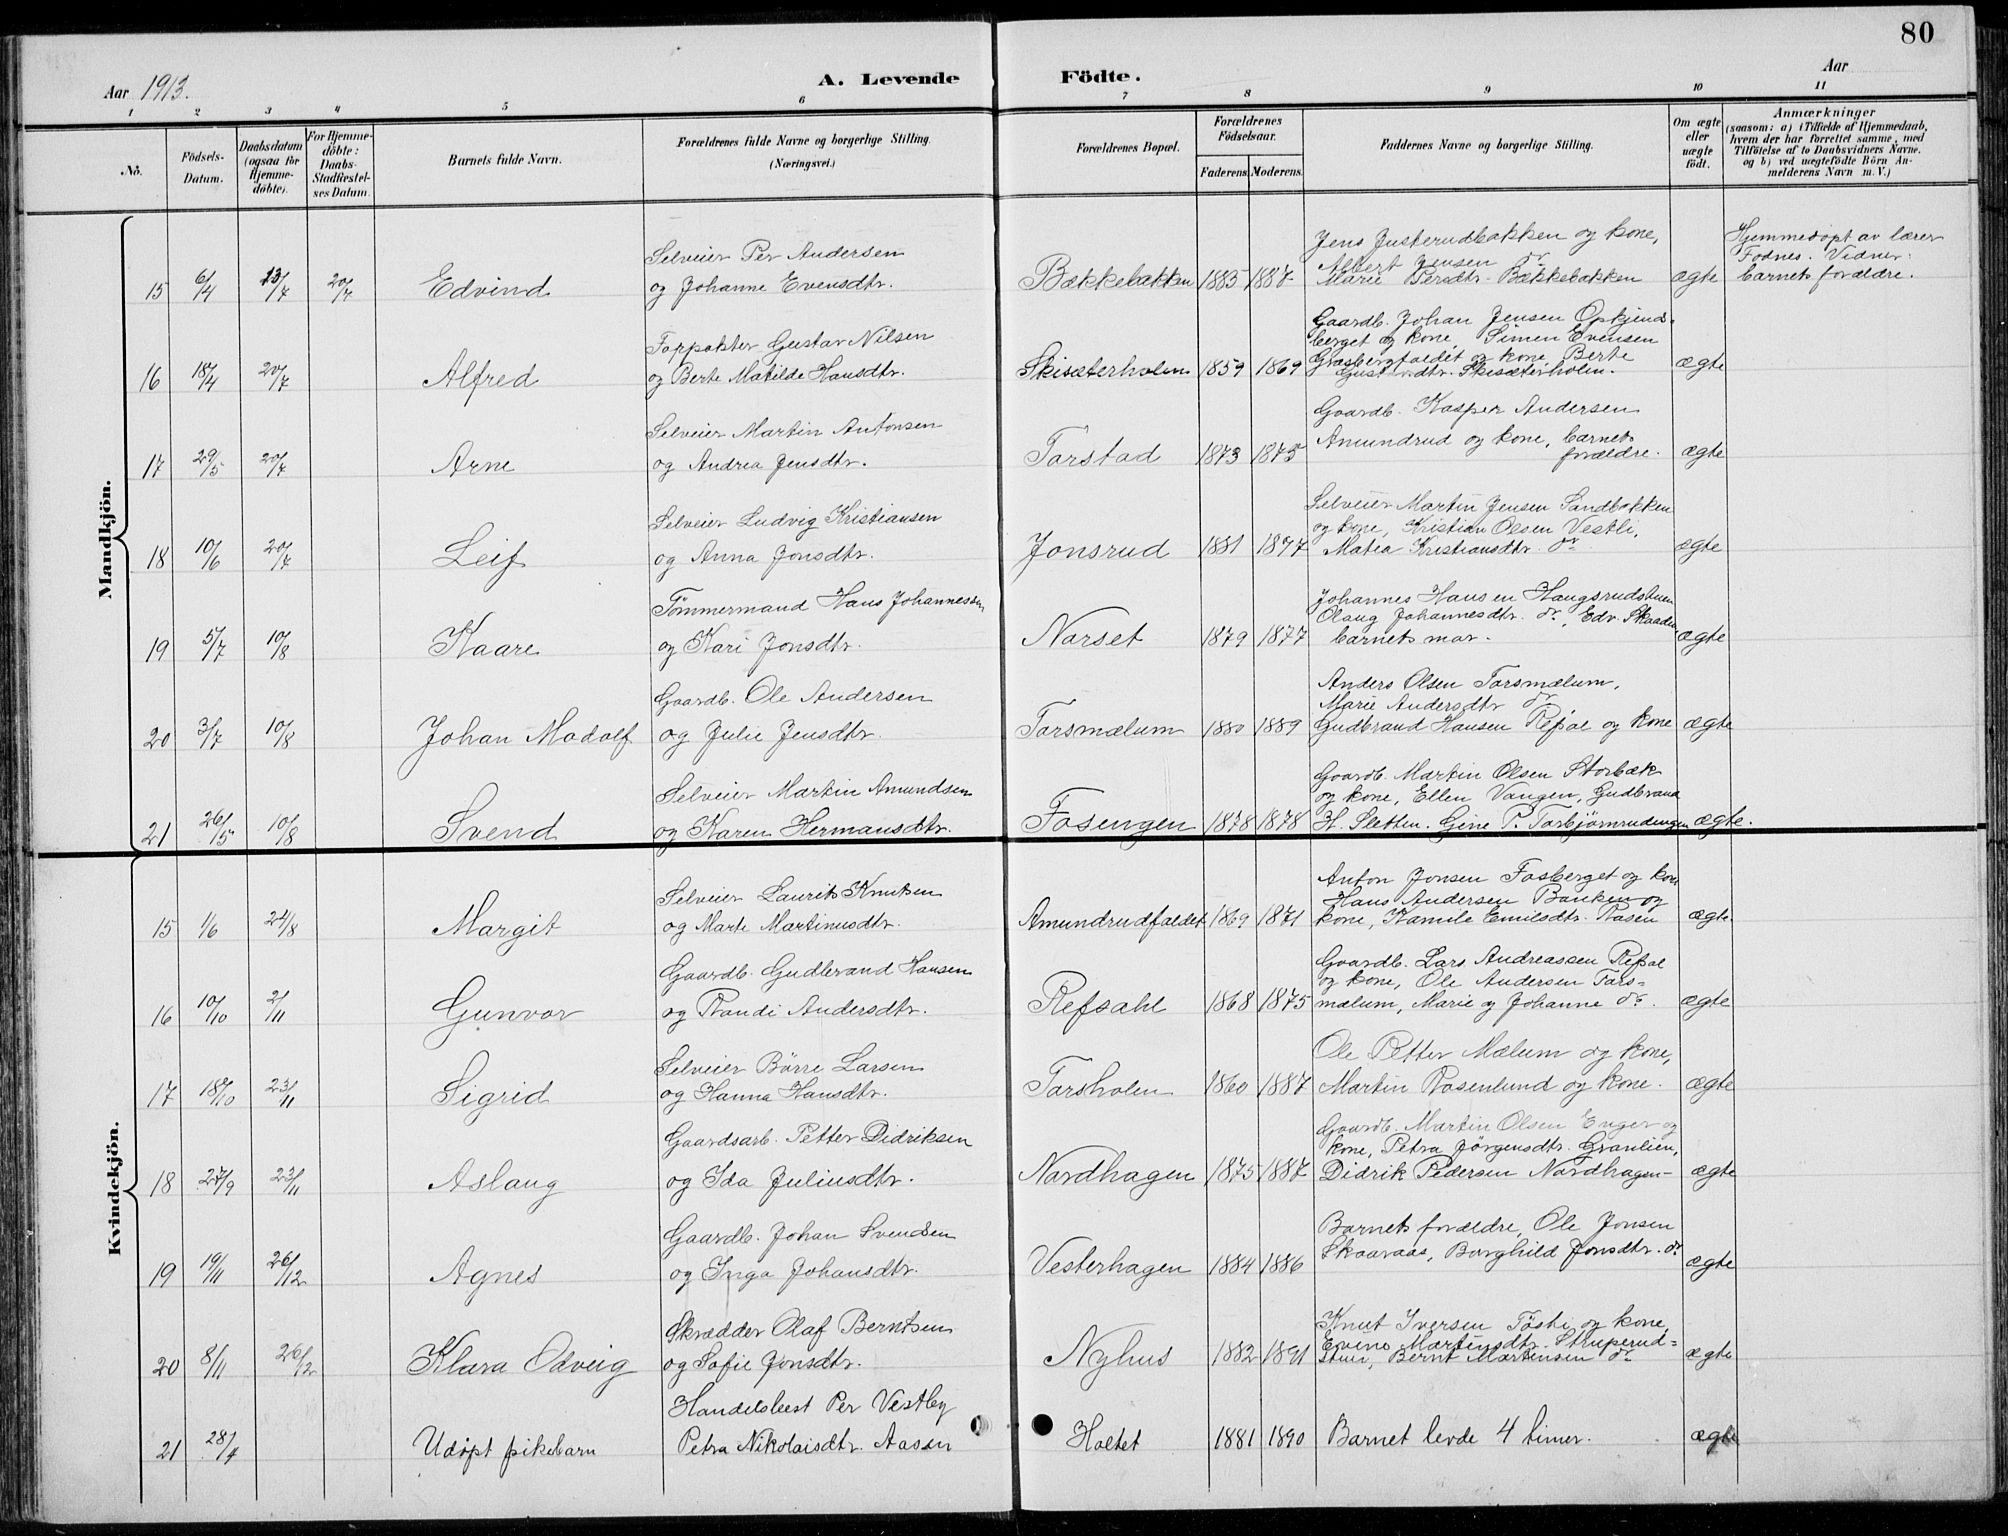 80
Aar 1913.
A. Levende
Födte.
Aar
1 2 3 4 5 6 7 8 9 10 11
No.
Födsels-
Datum.
Daabsdatum
(ogsaa for
Hjemme-
döbte).
For Hjemme-
döbte:
Daabs-
Stadfæstel-
ses Datum.
Barnets fulde Navn.
Forældrenes fulde Navne og borgerlige Stilling
(Næringsvei.)
Forældrenes Bopæl.
Forældrenes
Födselsaar.
Faderens. Moderens.
Faddernes Navne og borgerlige Stilling.
Om ægte
eller
uægte
født.
Anmærkninger
(saasom: a) i Tilfælde af Hjemmedaab,
hvem der har forrettet samme, med
Tilföielse af to Daabsvidners Navne.
og b) ved uægtefödte Börn An-
melderens Navn m. V.)
Mandkjön.
Selveier Per Andersen
Jens Justerudbakken og kone,
Albert Jensen do
Hjemmedøpt av lærer
Fodnes. Vidner:
15 6/4 13/7 20/7 Edvind og Johanne Evensdtr. Bækkebakken 1885 1887 Marie Persdtr. Bækkebakken ægte barnets forældre.
Forpakter Gustav Nilsen
Gaardb. Johan Jensen Opkjends-
berget og kone, Simen Evensen
16 18/4 20/7 Alfred og Berte Matilde Hansdtr. Skisæterholen 1859 1869 Græsbergfaldet og kone, Berte ægte
Skisæterholen.
Selveier Martin Antonsen
Gaardb. Kasper Andersen
Amundrud og kone, barnets
17 29/5 20/7 Arne og Andrea Jensdtr. Torstad 1873 1875 forældre. ægte
Selveier Ludvig Kristiansen
Selveier Martin Jensen Sandbakken
og kone, Kristian Olsen Vestli,
18 10/6 20/7 Leif og Anna Jonsdtr. Jonsrud 1881 1877 Matea Kristiansdtr. do ægte
Tømmermand Hans Johannessen
Johannes Hansen Haugsrudstuen
Olaug Johannesdtr. do, Edv. Skaaden
19 5/7 10/8 Kaare og Kari Jonsdtr. Norset 1879 1877 barnets mor. ægte
Gaardb. Ole Andersen
Anders Olsen Torsmælum,
Marie Andersdtr do
20 3/7 10/8 Johan Modolf og Julie Jensdtr. Torsmælum 1880 1889 Gudbrand Hansen Refsal og kone ægte
Selveier Martin Amundsen
Gaardb. Martin Olsen Storbæk
og kone, Ellen Vangen, Gudbrand
21 26/5 10/8 Svend og Karen Hermansdtr. Fosengen 1878 1878 H. Sletten. Gine P. Torbjørnrudengen ægte.
Kvindekjön.
Selveier Laurits Knutsen
Anton Jonsen Fosberget og kone
Hans Andersen Bakken og
15 1/6 24/8 Margit og Marte Martinusdtr. Amundrudfaldet 1869 1871 kone, Kamile Emilsdtr. Rasen ægte
Gaardb. Gudbrand Hansen
Gaardb. Lars Andreassen Refsal
og kone, Ole Andersen Tors-
16 10/10 2/11 Gunvor og Randi Andersdtr. Refsahl 1868 1875 mælum, Marie og Johanne do. ægte
Selveier Börre Larsen
Ole Petter Mælum og kone,
17 18/10 23/11 Sigrid og Hanna Hansdtr. Torsholen 1860 1887 Martin Rosenlund og kone. ægte
Gaardsarb. Petter Didriksen
Gaardb. Martin Olsen Enger og
kone, Petra Jörgensdtr. Granlien,
18 27/9 23/11 Aslaug og Ida Juliusdtr. Nordhagen 1875 1887 Didrik Pedersen Nordhagen- ægte
Gaardb. Johan Svendsen
Barnets forældre, Ole Jonsen
Skaaraas, Borghild Jonsdtr. do
19 19/11 26/12 Agnes og Inga Johansdtr. Vesterhagen 1884 1886 ægte
Skrædder Olaf Berntsen
Knut Iversen Tøsti og kone,
Martinsdtr. Struperud-
20 8/11 26/12 Klara Odveig og Sofie Jonsdtr. Nyhus 1882 1891 stuen, Bernt Martinsen do ægte
Handelsbest Per Vestby
21 28/4 Udøpt pikebarn Petra Nikolaisdtr. Aasen Holtet 1881 1890 Barnet levde 4 timer. ægte